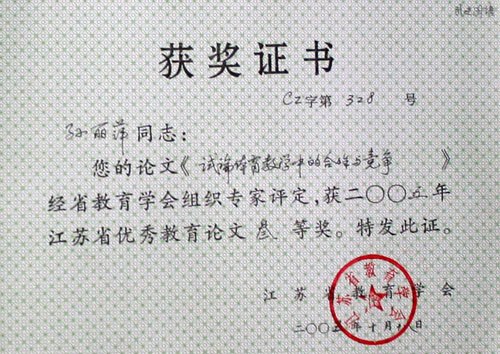 获奖证书
CZ字第 328 号
孙丽萍同志：
您的论文《试论体育教学中的合作与竞争》
经省教育学会组织专家评定，获二〇〇五年
江苏省优秀教育论文叁等奖。特发此证。
江苏省教育学会
二〇〇五年十月十八日